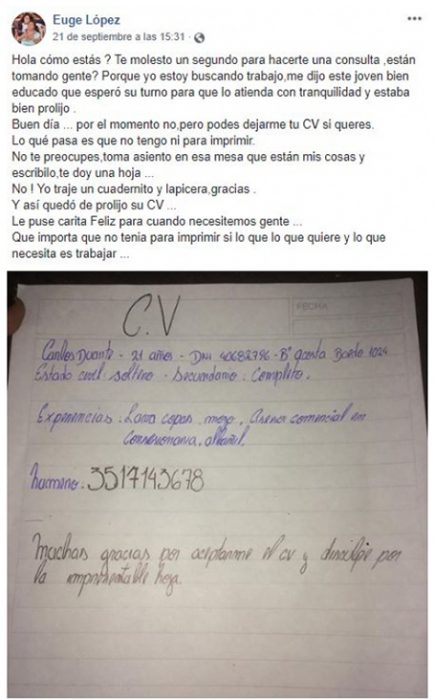 Euge López
21 de septiembre a las 15:31 ·
Hola cómo estás ? Te molesto un segundo para hacerte una consulta ,están
tomando gente? Porque yo estoy buscando trabajo,me dijo este joven bien
educado que esperó su turno para que lo atienda con tranquilidad y estaba
bien prolijo .
Buen día ... por el momento no,pero podes dejarme tu CV si queres.
Lo qué pasa es que no tengo ni para imprimir.
No te preocupes,toma asiento en esa mesa que están mis cosas y
escribilo,te doy una hoja ...
No ! Yo traje un cuadernito y lapicera,gracias .
Y así quedó de prolijo su CV ...
Le puse carita Feliz para cuando necesitemos gente ...
Que importa que no tenia para imprimir si lo que lo que quiere y lo que
necesita es trabajar ...
FECHA
C.V
Carlos Duarte - 21 años - DNI 40682796 - Bº Acosta 1024
Estado civil: soltero - Secundario: Completo.
Experiencias: Lava copas, mozo, Asesor comercial en
Consecionaria, albañil.
humero: 3517143678
Muchas gracias por aceptarme el cv y disculpe por
la impresentable hoja.